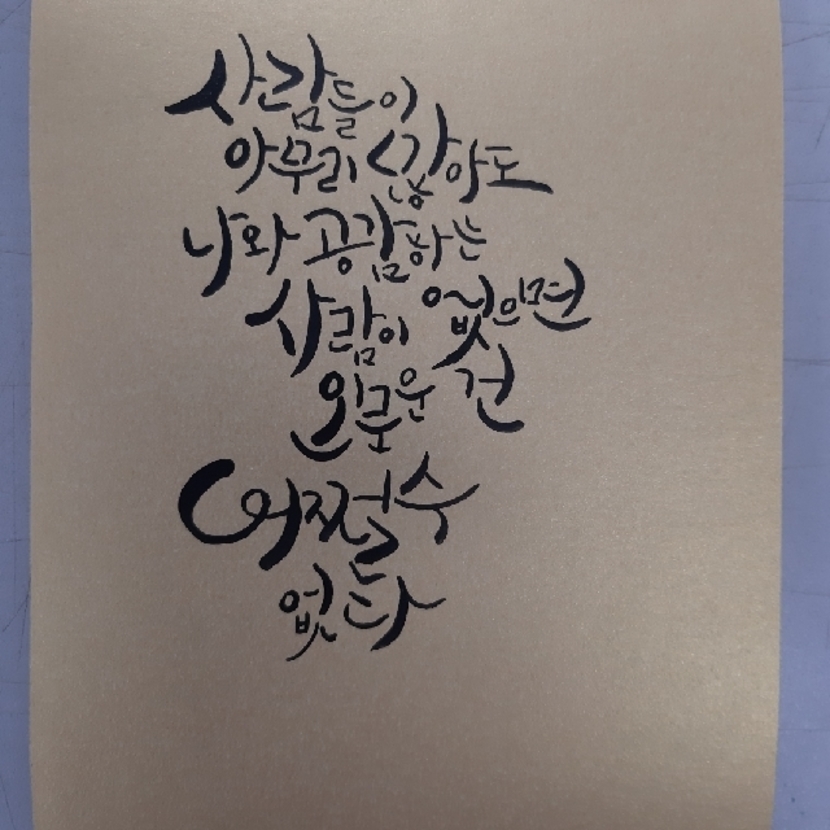 사람들이
아무리 많아도
나와 공감하는
사람이 없으면
외로운 건
어쩔 수
없다